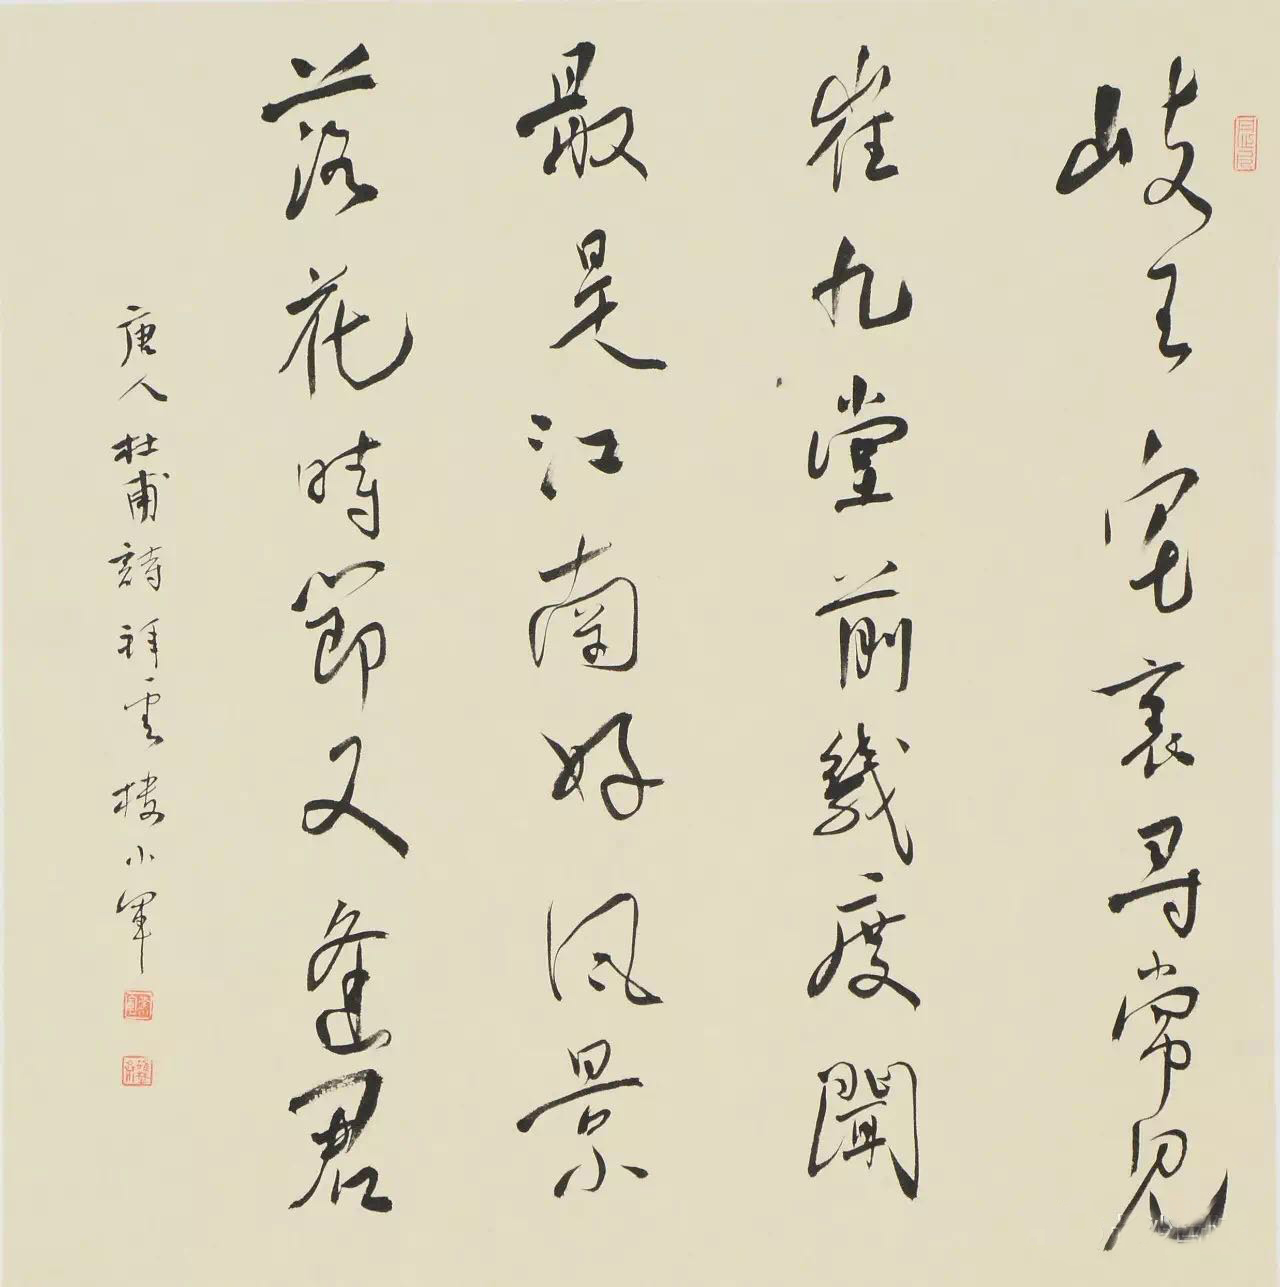 岐王宅裏尋常見
崔九堂前幾度聞
最是江南好風景
落花時節又逢君
唐人杜甫詩祥雲樓小軍